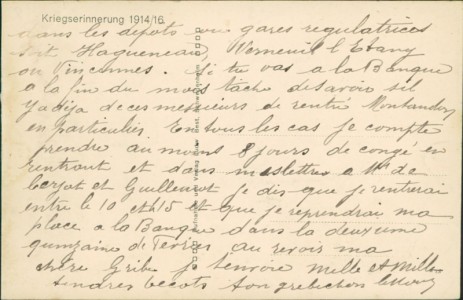 Kriegserinnerung 1914/16.
dans les depots ou gares regulatrices
soit Hagueneau, Verneuil l'Etang
ou Vincennes. Si tu vas a la Banque
a la fin du mois tâche de savoir sil
y a deja de ces messieurs de rentré Montandon
en particulier. En tous les cas je compte
prendre au moins 8 jours de congé en
rentrant et dans mes lettres a Mr de
Cerjat et Guillemot je dis que je rentrerai
entre le 10 et le 15 et que je reprendrai ma
place a la Banque dans la deuxieme
quinzaine de Fevrier au revoir ma
chère Gribe je t'envoie mille et mille
tendres becots ton